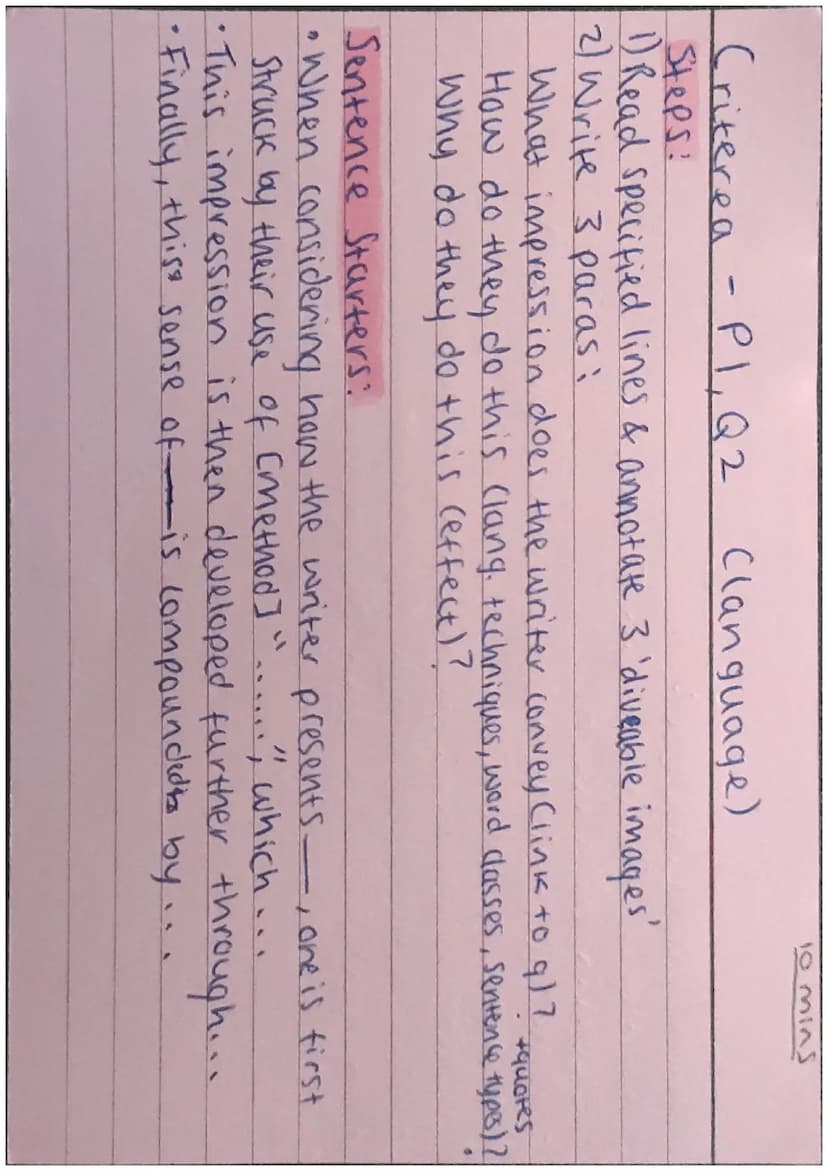 10 mins
Criterea - P1, Q2 (language)
Steps:
1) Read specified lines & annotate 3 'diveable images'
2) Write 3 paras:
What impression does the writer convey (link to q)?
+quotes
How do they do this (lang. techniques, word classes, sentence types)?
Why do they do this (effect)?
Sentence Starters:
• When considering how the writer presents —, one is first
struck by their use of [method] "......", which...
• This impression is then developed further through...
• Finally, this sense of — is compounded by...